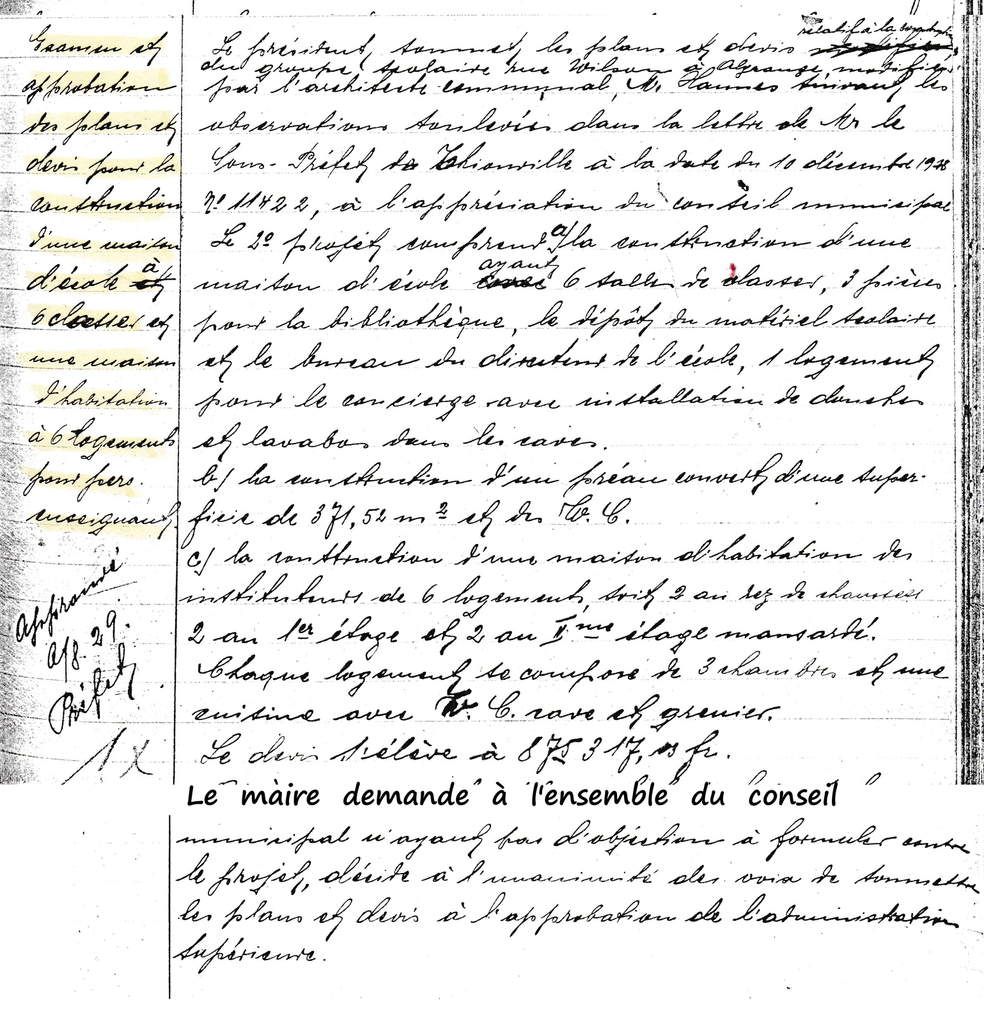 Examen et
approbation
des plans et
devis pour la
construction
d'une maison
d'école à
6 classes et
une maison
d'habitation
à 6 logements
pour pers.
enseignant.
Approuvé
8. 29.
Préfet
1x
relatif à la
Le président, soumet, les plans et devis
du groupe scolaire rue Wilson à Algrange, modifiés
par l'architecte communal, M. Hannes suivant les
observations soulevées dans la lettre de Mr le
Sous-Préfet de Thionville à la date du 10 décembre 1928
No 11422, à l'appréciation du conseil municipal
Le 2e projet comprend a/ la construction d'une
maison d'école ayant 6 salles de classes, 3 pièces
pour la bibliothèque, le dépôt du matériel scolaire
et le bureau du directeur de l'école, 1 logement
pour le concierge avec installation de douches
et lavabos dans les caves.
b/ la construction d'un préau couvert d'une super-
ficie de 371,52 m2 et des W. C.
c/ la construction d'une maison d'habitation des
instituteurs de 6 logements, soit 2 au rez de chaussée
2 au 1er étage et 2 au IIme étage mansardé.
Chaque logement se compose de 3 chambres et une
cuisine avec W. C. cave et grenier.
Le devis s'élève à 875 317,13 fr.
Le maire demande à l'ensemble du conseil
municipal n'ayant pas d'objection à formuler contre
le projet, décide à l'unanimité des voix de soumettre
les plans et devis à l'approbation de l'administration
supérieure.